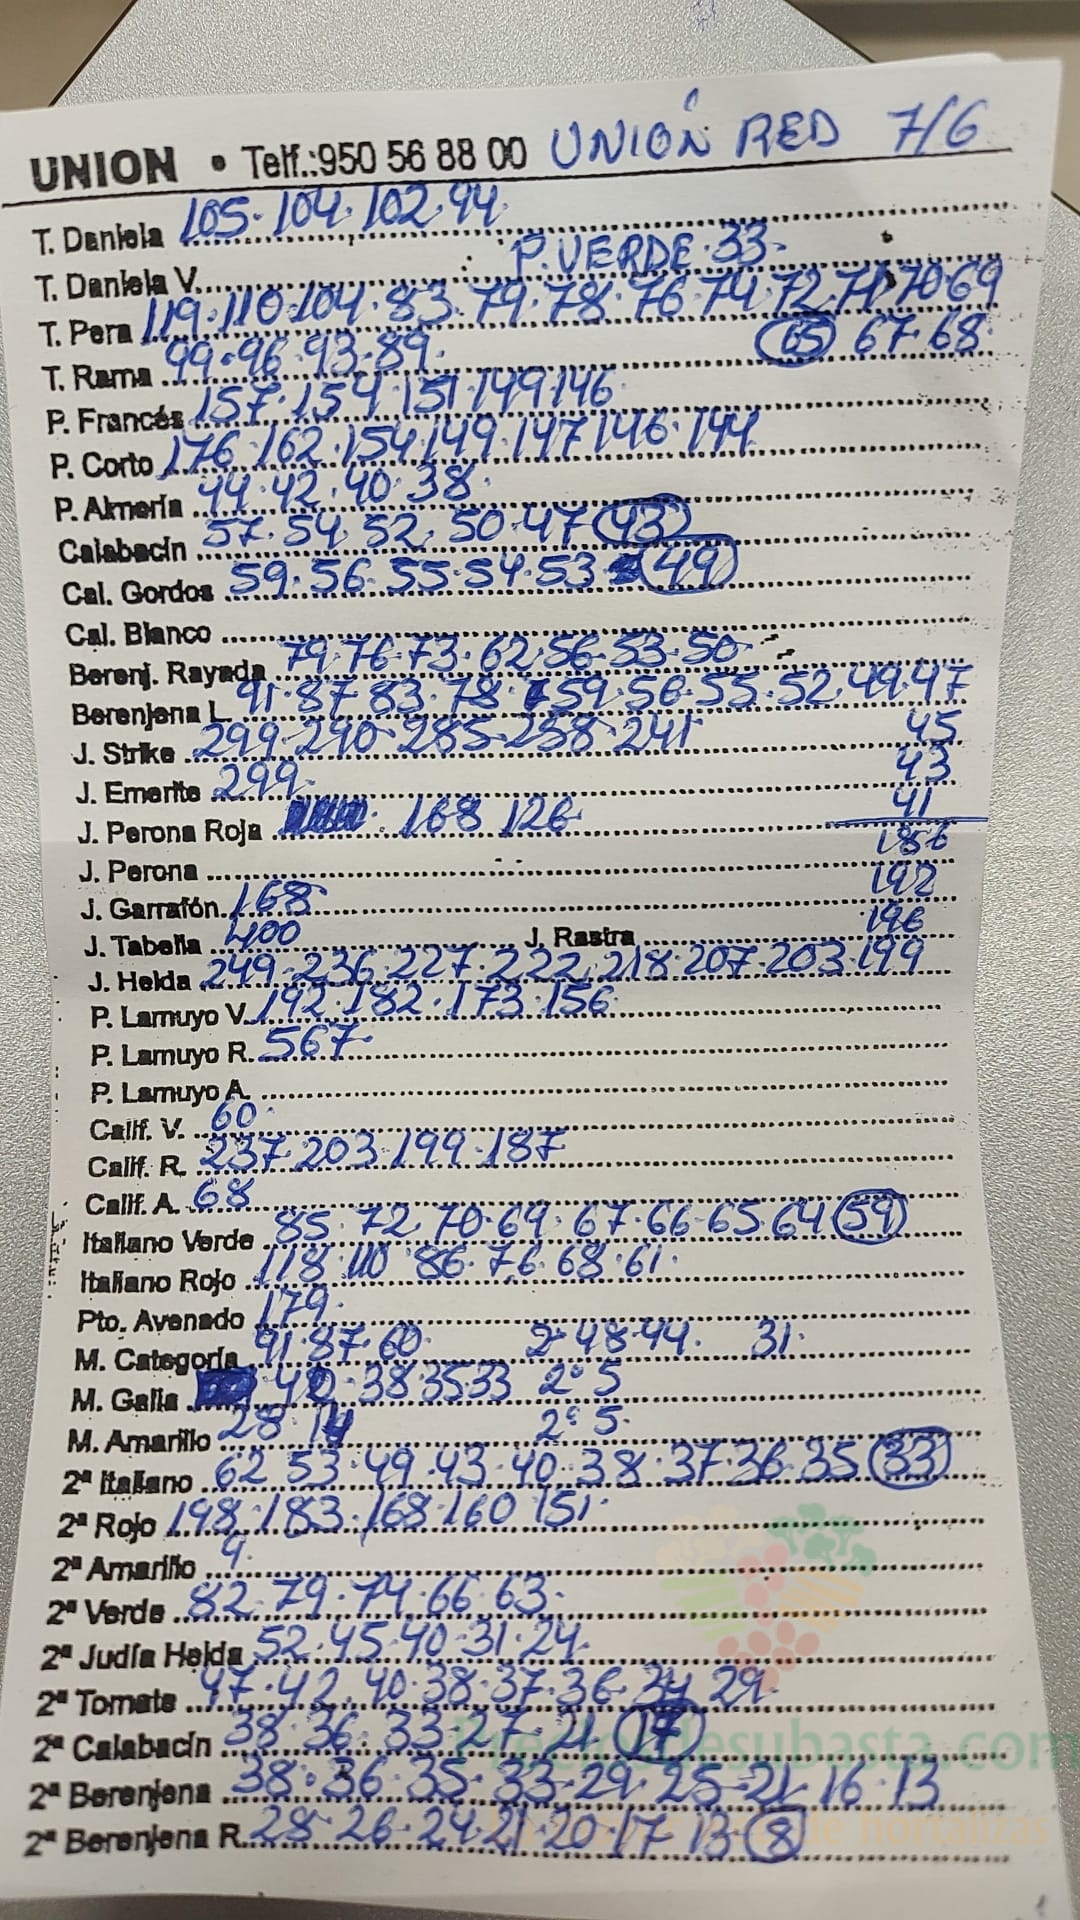 UNION • Telf.:950 56 88 00 UNIÓN RED 7/6
T. Daniela 105. 104. 102. 94.
T. Daniela V. P. VERDE. 33.
T. Pera 119. 110. 104. 83. 79. 78. 76. 74. 72. 71. 70. 69
T. Rama 99. 96. 93. 89. 65 67. 68
P. Francés 157. 154. 151. 149. 146
P. Corto 176. 162. 154. 149. 147. 146. 144
P. Almería 44. 42. 40. 38.
Calabacín 57. 54. 52. 50. 47 43
Cal. Gordos 59. 56. 55. 54. 53. 49
Cal. Blanco
Berenj. Rayada 79. 76. 73. 62. 56. 53. 50
Berenjena L. 91. 87. 83. 78. 59. 56. 55. 52. 49. 47
J. Strike 299. 290. 285. 258. 241 45
J. Emerite 299. 43
J. Perona Roja 168 126. 41
J. Perona 186
J. Garrafón 168 192
J. Tabella 400 J. Rastra 196
J. Helda 249. 236. 227. 222. 218. 207. 203. 199
P. Lamuyo V. 192. 182. 173. 156
P. Lamuyo R. 567.
P. Lamuyo A.
Calif. V. 60.
Calif. R. 237. 203. 199. 187
Calif. A. 68
Italiano Verde 85. 72. 70. 69. 67. 66. 65. 64 59
Italiano Rojo 118. 110. 86. 76. 68. 61.
Pto. Avenado 179.
M. Categoría 91. 87. 60. 2ª 48. 44. 31.
M. Galia 38. 35. 33 2ª 5
M. Amarillo 28. 2ª 5.
2ª Italiano 62. 53. 49. 43. 40. 38. 37. 36. 35 33
2ª Rojo 198. 183. 168. 160 151.
2ª Amarillo 9.
2ª Verde 82. 79. 74. 66. 63.
2ª Judía Helda 52. 45. 40. 31. 24.
2ª Tomate 47. 42. 40. 38. 37. 36. 34 29.
2ª Calabacín 38. 36. 33. 27. 21. 17
Preciosdesubasta.com
2ª Berenjena 38. 36. 35. 33. 29. 25. 21. 16. 13
2ª Berenjena R. 28. 26. 24. 21. 20. 17 13. 8
de hortalizas